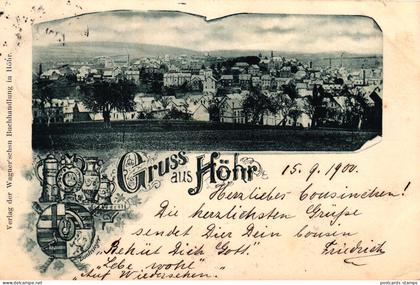 Verlag der Wagner'schen Buchhandlung in Höhr.
Gruss aus Höhr
15.9.1900.
Herzliebes Cousinchen!
Die herzlichsten Grüsse
sendet Dir Dein Cousin
Friedrich
"Behüt Dich Gott."
"Lebe wohl"
"Auf Wiedersehen."